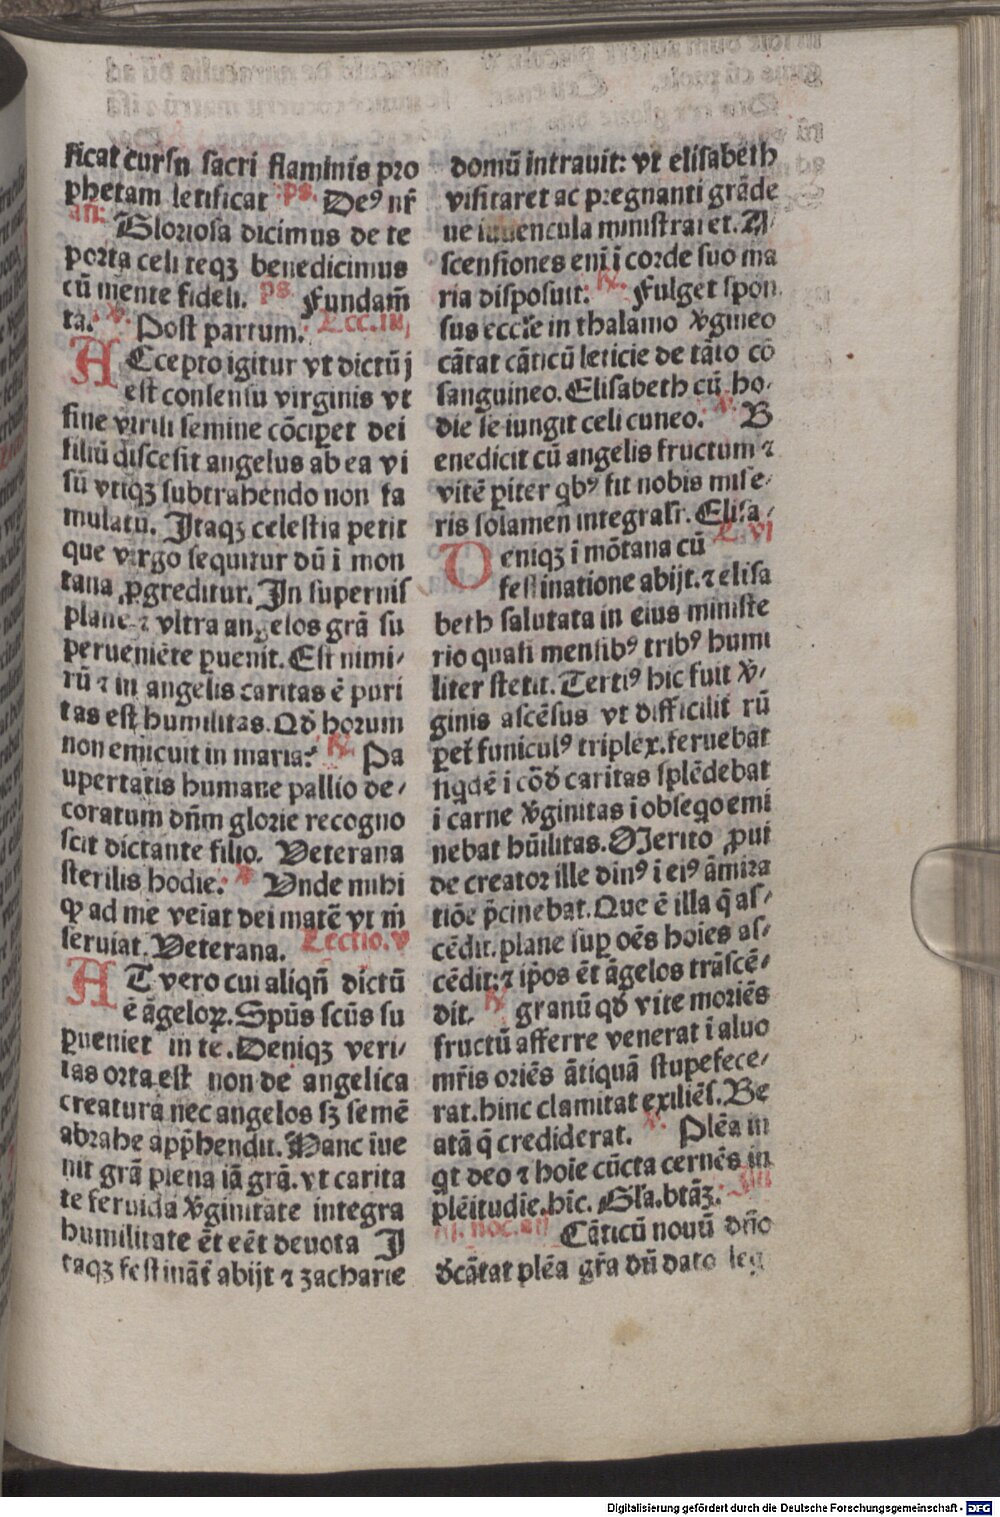 ficat cursu sacri flaminis pro
phetam letificat ps. Deꝰ nr̄
an: Gloriosa dicimus de te
porta celi teqꝫ benedicimus
cū mente fideli. ps Fundam̄
ta. ꝟ. Post partum. Lcc.IIIj
ACcepto igitur vt dictū j
est consensu virginis vt
sine virili semine cōciꝑet dei
filiū discesit angelus ab ea vi
sū vtiqꝫ subtrahendo non fa
mulatū. Itaqꝫ celestia petit
que virgo sequitur dū i mon
tana ꝓgreditur. In supernis
plane ⁊ vltra angelos grā su
perueniēte ꝑuenit. Est nimi/
rū ⁊ in angelis caritas ē puri
tas est humilitas. Qd̄ horum
non emicuit in maria? ℟. Pa
upertatis humane pallio de/
coratum dn̄m glorie recogno
scit dictante filio. Veterana
sterilis hodie. ꝟ Vnde mihi
ꝙ ad me veiat dei matē vt m̄
seruiat. Veterana. Lectio.v
AT vero cui aliqn̄ dictū
ē āgeloꝝ. Spūs scūs su
ꝑueniet in te. Deniqꝫ veri/
tas orta est non de angelica
creatura nec angelos sꝫ semē
abrahe app̄hendit. Hanc iue
nit grā plena iā grā. vt carita
te feruida ꝟginitate integra
humilitate ēt eēt deuota I
taqꝫ festināt̄ abijt ⁊ zacharie
domū intrauit: vt elisabeth
visitaret ac pregnanti grāde
ue iuuencula ministraret. A/
scensiones eni i corde suo ma
ria disposuit: ℟. Fulget spon
sus eccīe in thalamo ꝟgineo
cātat cāticū leticie de tāto cō
sanguineo. Elisabeth cū ho/
die se iungit celi cuneo. ꝟ. B
enedicit cū angelis fructum ⁊
vitē ꝑiter qbꝰ fit nobis mise/
ris solamen integralr. Elisa/
L. vi
Deniqꝫ i mōtana cū
festinatione abijt. ⁊ elisa
beth salutata in eius ministe
rio quasi mensibꝰ tribꝰ humi
liter stetit. Tertiꝰ hic fuit ꝟ/
ginis ascēsus vt difficilit rū
pet̄ funiculꝰ triplex. feruebat
siqdē i cōd̄ caritas splēdebat
i carne ꝟginitas i obseqo emi
nebat hūilitas. Merito ꝓui
de creator ille dinꝰ i eiꝰ āmira
tiōe p̄cinebat. Que ē illa q̄ as/
cēdit. plane suꝑ oēs hoies as/
cēdit: ⁊ ip̄os ēt āgelos trāscē/
dit. ℟ granū qd̄ vite moriēs
fructū afferre venerat i aluo
mr̄is oriēs ātiquā stupefece/
rat. hinc clamitat exiliēs. Be
atā q̄ crediderat. ꝟ. Plēa in
qt deo ⁊ hoie cūcta cernēs in
plēitudie. hīc. Gl'a. btāꝫ.
IIj. noc. an Cāticū nouū dn̄o
d̄cātat plēa gr̄a dū dato leg
Digitalisierung gefördert durch die Deutsche Forschungsgemeinschaft - DFG